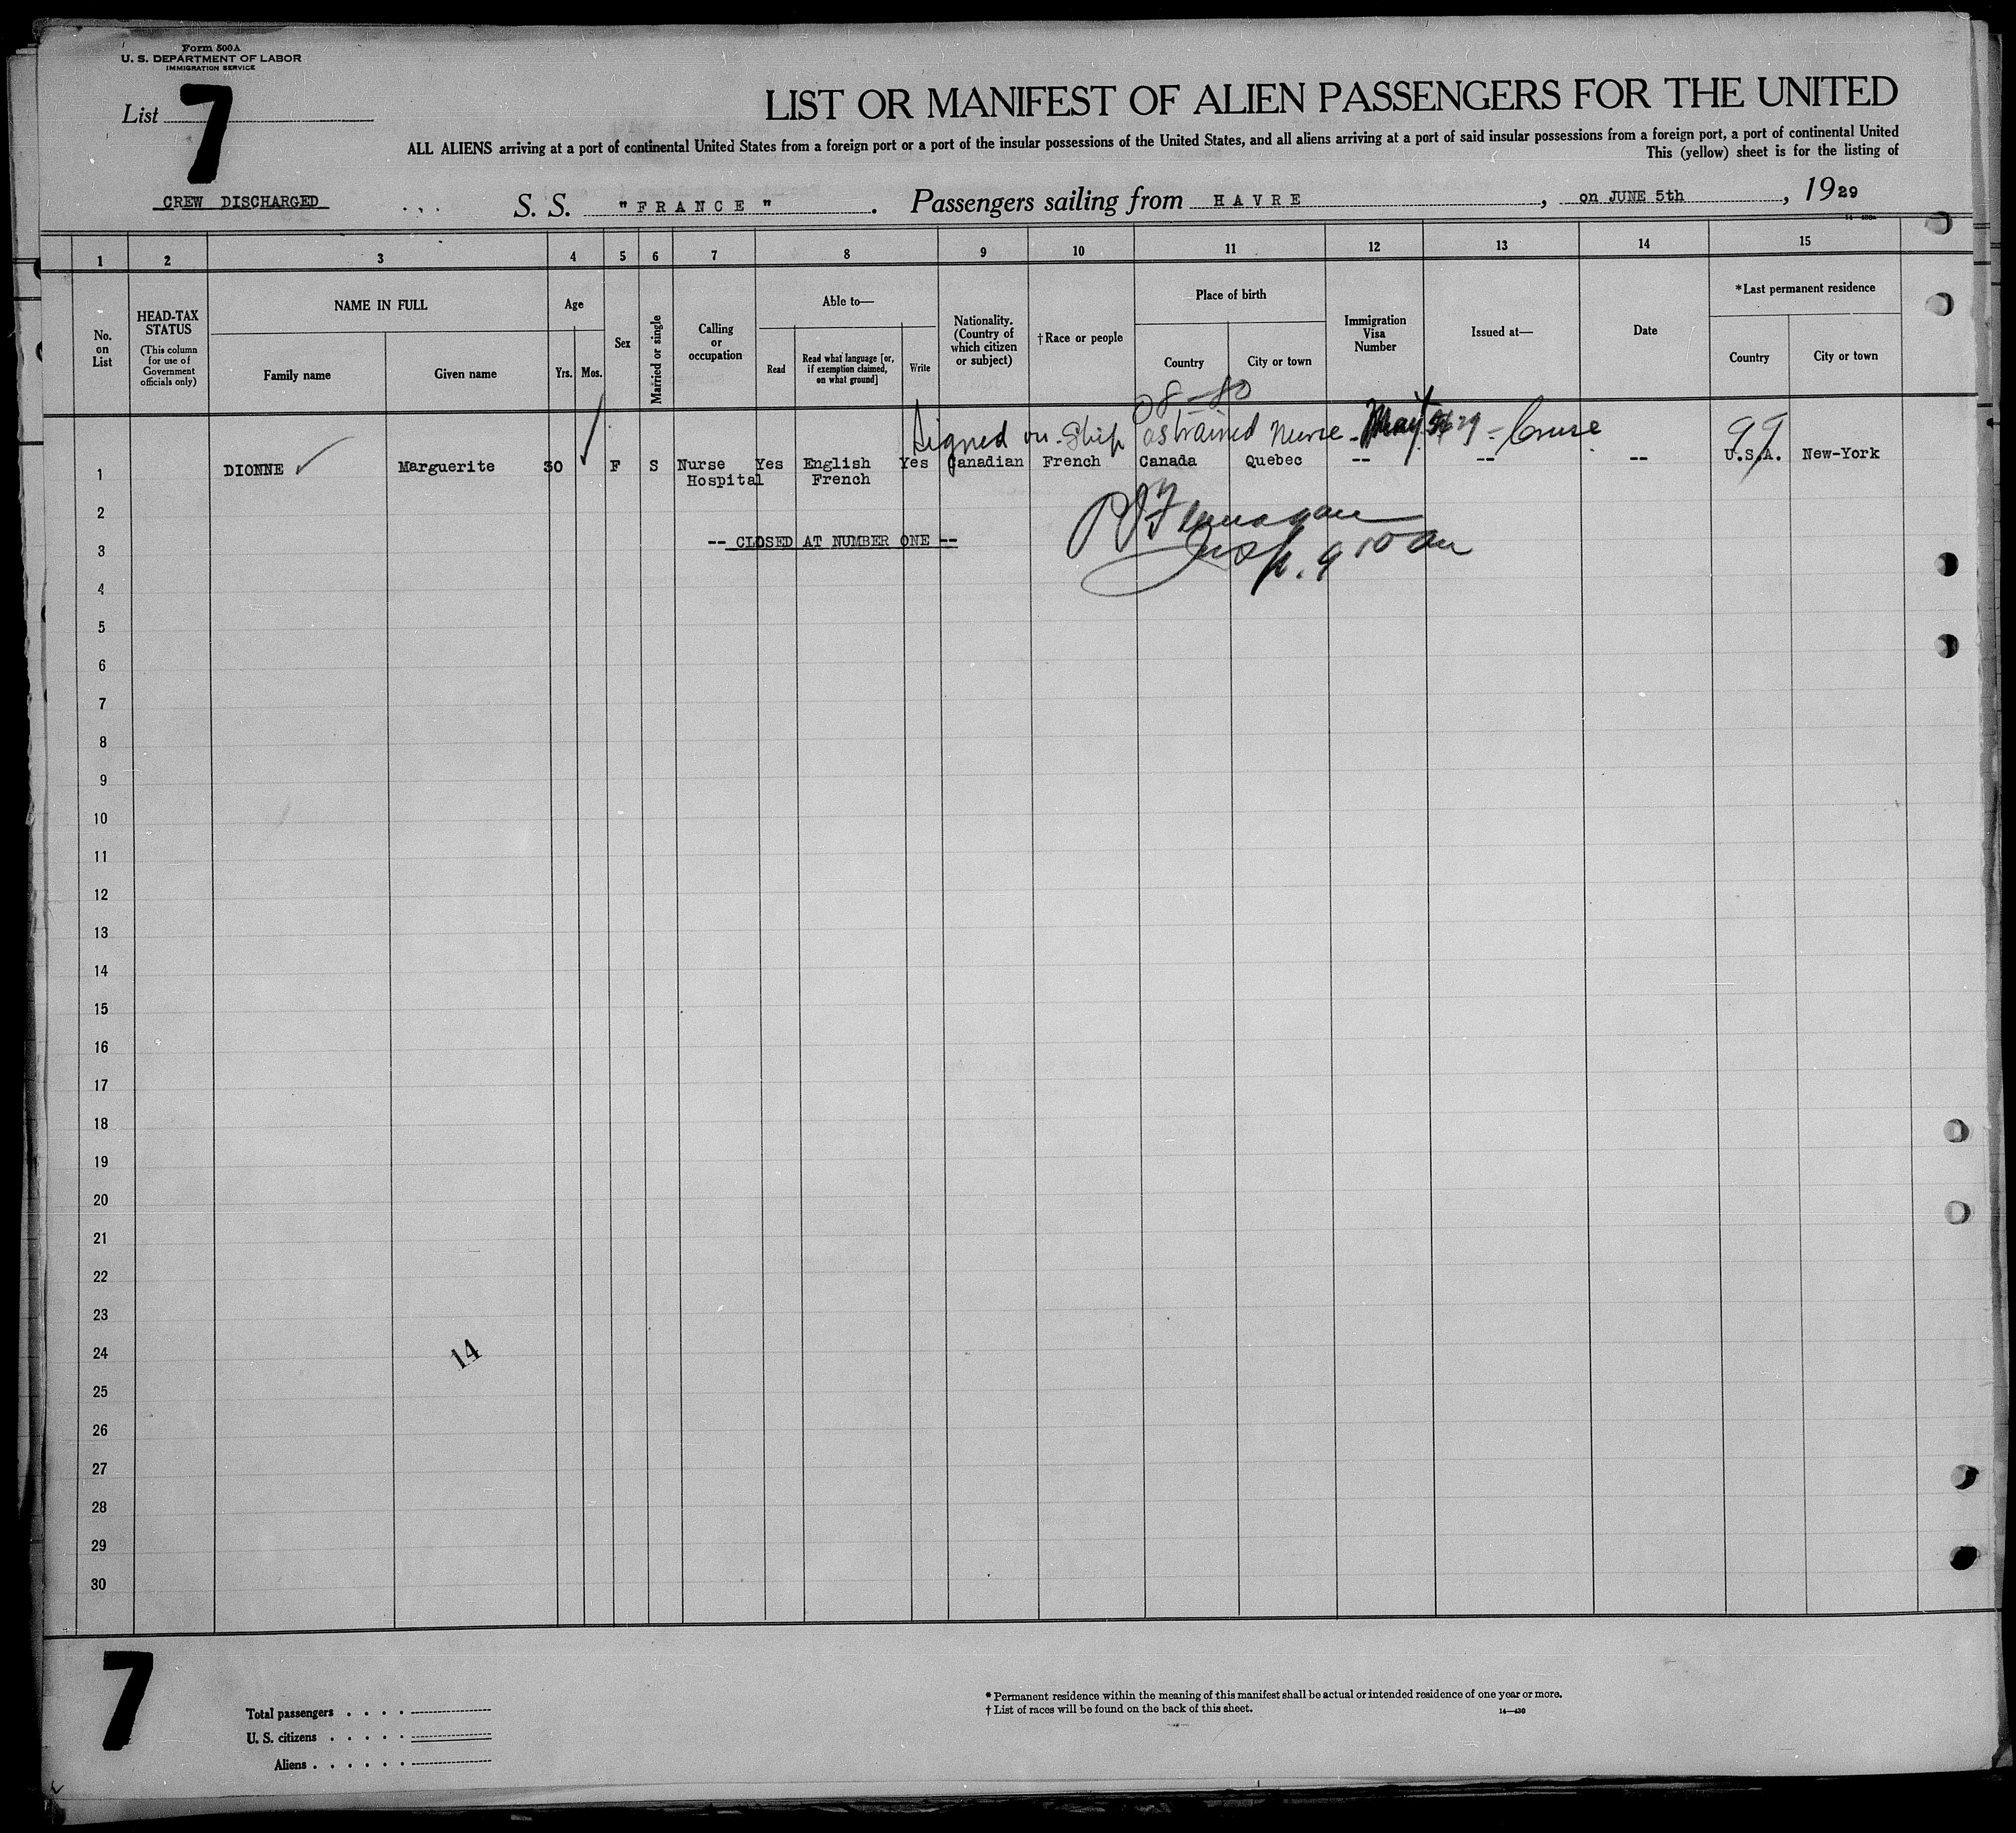 Form 500A
U. S. DEPARTMENT OF LABOR
IMMIGRATION SERVICE
List 7
LIST OR MANIFEST OF ALIEN PASSENGERS FOR THE UNITED
ALL ALIENS arriving at a port of continental United States from a foreign port or a port of the insular possessions of the United States, and all aliens arriving at a port of said insular possessions from a foreign port, a port of continental United
This (yellow) sheet is for the listing of
CREW DISCHARGED S. S. "FRANCE". Passengers sailing from HAVRE, on JUNE 5th, 1929
1 2 3 4 5 6 7 8 9 10 11 12 13 14 15
No. on List
HEAD-TAX STATUS
(This column for use of Government officials only)
NAME IN FULL
Family name
Given name
Age
Yrs. Mos.
Sex
Married or single
Calling or occupation
Able to—
Read
Read what language [or, if exemption claimed, on what ground]
Write
Nationality. (Country of which citizen or subject)
†Race or people
Place of birth
Country
City or town
Immigration Visa Number
Issued at—
Date
*Last permanent residence
Country
City or town
Signed on Ship as trained nurse - May 29 - Cruse
99
1 DIONNE ✓ Marguerite 30 F S Nurse Yes English Yes Canadian French Canada Quebec -- -- -- U.S.A. New-York
Hospital French
2
3 -- CLOSED AT NUMBER ONE --
Flanagan
Insp. 9 10 am
4
5
6
7
8
9
10
11
12
13
14
15
16
17
18
19
20
21
22
23
24
14
25
26
27
28
29
30
7
Total passengers . . . .
U. S. citizens . . . . .
Aliens . . . . . .
* Permanent residence within the meaning of this manifest shall be actual or intended residence of one year or more.
† List of races will be found on the back of this sheet.
14—430